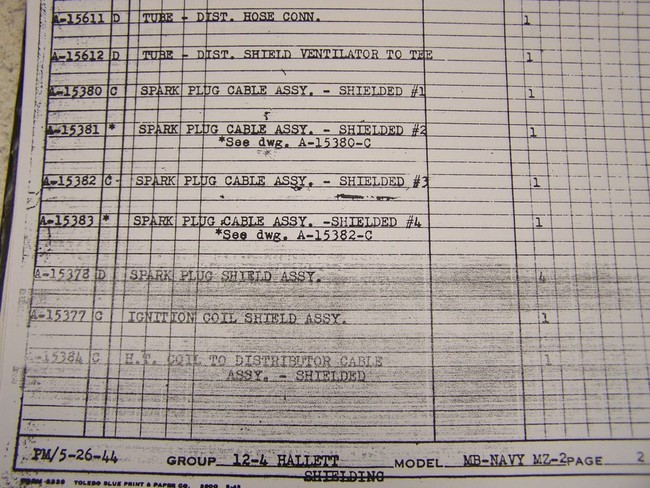 A-15611 D TUBE - DIST. HOSE CONN. 1
A-15612 D TUBE - DIST. SHIELD VENTILATOR TO TEE 1
A-15380 C SPARK PLUG CABLE ASSY. - SHIELDED #1 1
A-15381 * SPARK PLUG CABLE ASSY. - SHIELDED #2 1
*See dwg. A-15380-C
A-15382 C- SPARK PLUG CABLE ASSY. - SHIELDED #3 1
A-15383 * SPARK PLUG CABLE ASSY. -SHIELDED #4 1
*See dwg. A-15382-C
A-15378 D SPARK PLUG SHIELD ASSY. 4
A-15377 C IGNITION COIL SHIELD ASSY. 1
A-15384 C H.T. COIL TO DISTRIBUTOR CABLE 1
ASSY. - SHIELDED
PM/5-26-44 GROUP 12-4 HALLETT MODEL MB-NAVY MZ-2 PAGE 2
SHIELDING
TOLEDO BLUE PRINT & PAPER CO.